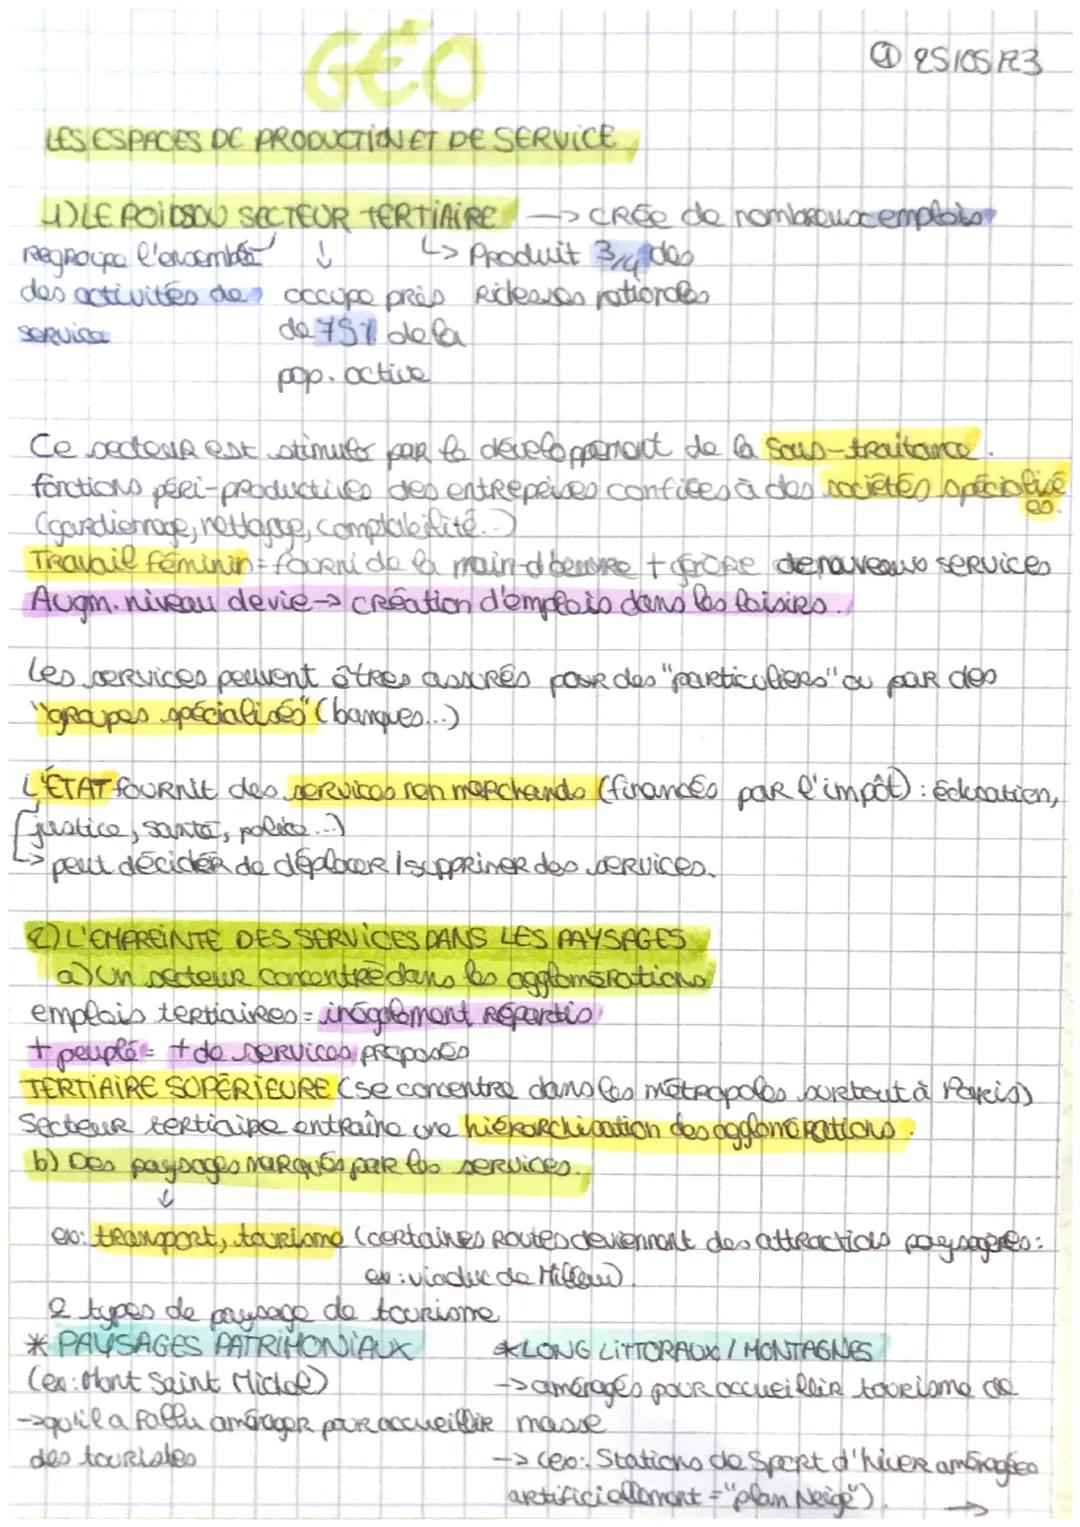 GÉO
① 25/05/23
LES ESPACES DE PRODUCTION ET DE SERVICE
1) LE POIDS DU SECTEUR TERTIAIRE → CRÉE de nombreux emplois
regroupe l'ensemble ↓ ↳ Produit 3/4 des
des activités de occupe près Richesses nationales
service de 75% de la
pop. active
Ce secteur est stimuler par le développement de la sous-traitance.
fonctions péri-productives des entreprises confiées à des sociétés spécialisé
es.
(gardiennage, nettoyage, comptabilité...)
Travail féminin = fourni de la main d'œuvre + génère de nouveaux services
Augm. niveau de vie → création d'emplois dans les loisirs.
Les services peuvent êtres assurés pour des "particuliers" ou par des
"groupes spécialisés" (banques...)
L'ÉTAT fournit des services non marchands (financés par l'impôt) : éducation,
justice, santé, police...)
↳ peut décider de déplacer / supprimer des services.
2) L'EMPREINTE DES SERVICES DANS LES PAYSAGES
a) Un secteur concentré dans les agglomérations
emplois tertiaires = inégalement répartis
+ peuplé = + de services proposés
TERTIAIRE SUPÉRIEURE (se concentre dans les métropoles surtout à Paris)
Secteur tertiaire entraîne une hiérarchisation des agglomérations.
b) Des paysages marqués par les services.
↓
ex: transport, tourisme (certaines routes deviennent des attractions paysagères:
ex: viaduc de Millau).
2 types de paysage de tourisme
* PAYSAGES PATRIMONIAUX
(ex: Mont Saint Michel)
→ qu'il a fallu aménager pour accueillir
des touristes
* LONG LITTORAUX / MONTAGNES
→ aménagés pour accueillir tourisme de
masse
→ (ex: Stations de Sport d'hiver aménagées
artificiellement = "plan Neige").
→